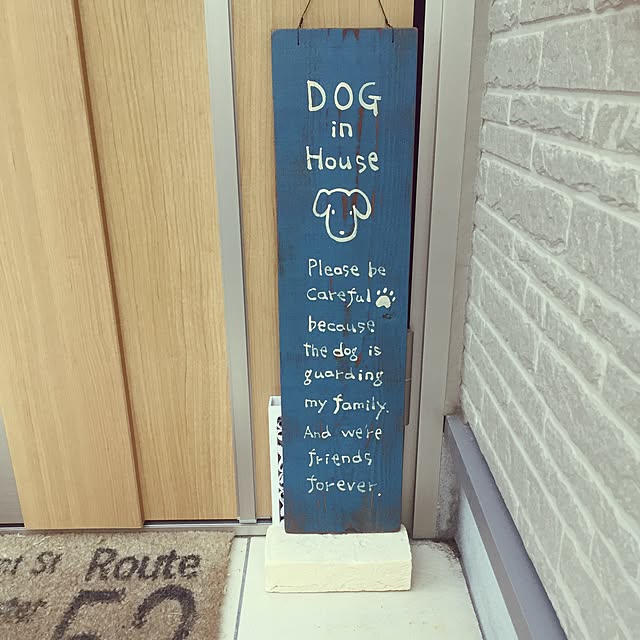 DOG
in
House
Please be
careful
because
the dog is
guarding
my family.
And we're
friends
forever.
St Route
52